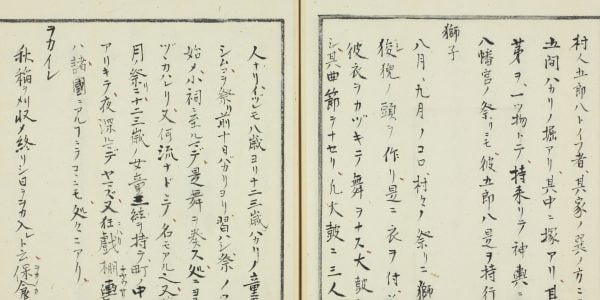 村人五郎八トイフ者、其家ノ巽ノ方ニ
五間ハカリノ掘アリ、其中ニ塚アリ、其
茅ヲ、一ツ物トテ、持来リテ神輿ニ
八幡宮ノ祭リニモ、彼五郎八是ヲ持行
獅子
八月、九月ノコロ村々ノ祭リニ獅
狻猊ノ頭ヲ作リ是ニ衣ヲ付
彼衣ヲカヅキテ舞ヲナス大鼓
其曲節ヲナセリ、凡大鼓ニ三人
人ナリ、イツレモ八歳ヨリ十二三歳ハカリノ童
シム、祭リ前十日ハカリヨリ習ハシ祭ノ
始小祠ニ至ルマデ是舞ヲ奏ス処ニヨ
ヅカハレリ、又何流ナドトテ、名モアル、又
月祭ニ十二三歳ノ女童三絃ヲ持テ町中
アリキテ、夜深ルマデヤマズ、又狂戯棚輿
ハ諸國ニアルコニテコヽニモ、処々ニアリ、
ヲカイレ
秋稲ヲ刈収ノ終リシ日ヲヲカ入レト云